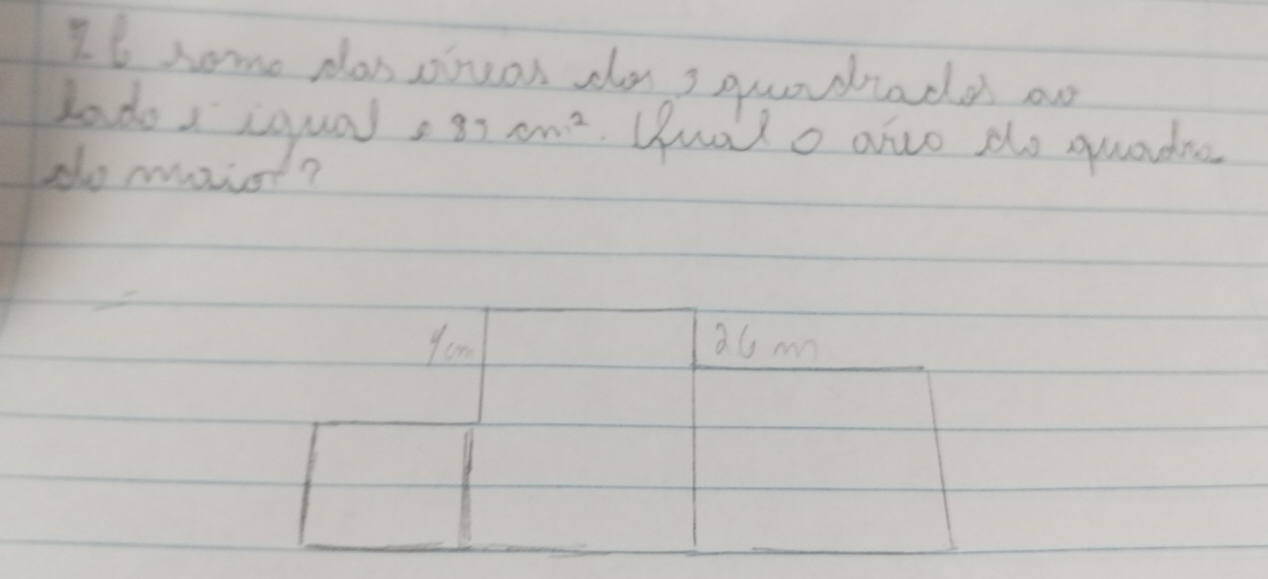 soma das áreas dos 3 quadrados ao
lado é igual a 83 cm². Qual a área do quadra
do maior?
4cm